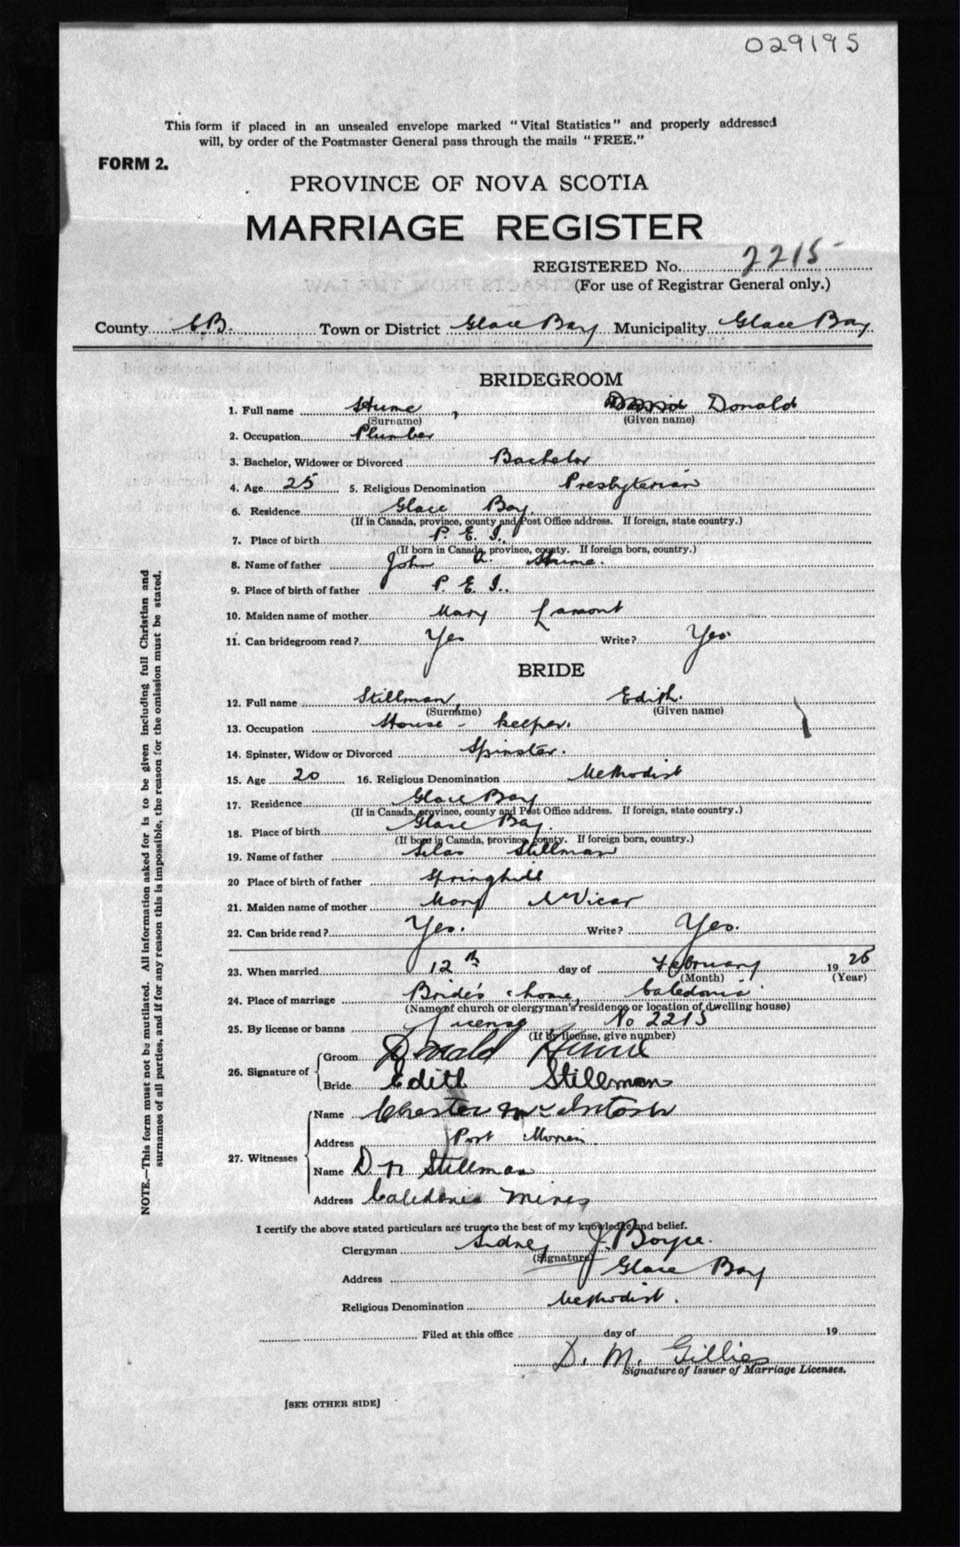 029195
This form if placed in an unsealed envelope marked "Vital Statistics" and properly addressed
will, by order of the Postmaster General pass through the mails "FREE."
FORM 2.
PROVINCE OF NOVA SCOTIA
MARRIAGE REGISTER
REGISTERED No. 2215
(For use of Registrar General only.)
County C.B. Town or District Glace Bay Municipality Glace Bay
BRIDEGROOM
1. Full name Hume, Donald
(Surname) (Given name)
2. Occupation Plumber
3. Bachelor, Widower or Divorced Bachelor
4. Age 25 5. Religious Denomination Presbyterian
6. Residence Glace Bay.
(If in Canada, province, county and Post Office address. If foreign, state country.)
7. Place of birth P. E. I.
(If born in Canada, province, county. If foreign born, country.)
8. Name of father John A. Hume.
9. Place of birth of father P. E. I.
10. Maiden name of mother Mary Lamont
11. Can bridegroom read? Yes Write? Yes
BRIDE
12. Full name Stillman, Edith.
(Surname) (Given name)
13. Occupation House-keeper.
14. Spinster, Widow or Divorced Spinster.
15. Age 20 16. Religious Denomination Methodist
17. Residence Glace Bay
(If in Canada, province, county and Post Office address. If foreign, state country.)
18. Place of birth Glace Bay.
(If born in Canada, province, county. If foreign born, country.)
19. Name of father Silas Stillman
20 Place of birth of father Springhill
21. Maiden name of mother Mary McVicar
22. Can bride read? Yes. Write? Yes.
23. When married 12th day of February 19 25
(Month) (Year)
24. Place of marriage Bride's home, Caledonia
(Name of church or clergyman's residence or location of dwelling house)
25. By license or banns License No 2215
(If by license, give number)
26. Signature of Groom Donald Hume
Bride Edith Stillman
27. Witnesses Name Chester McIntosh
Address Port Morien
Name D N Stillman
Address Caledonia Mines
I certify the above stated particulars are true to the best of my knowledge and belief.
Clergyman Sidney J. Boyce.
(Signature)
Address Glace Bay
Religious Denomination Methodist.
Filed at this office day of 19
D. M. Gillies
Signature of Issuer of Marriage Licenses.
[SEE OTHER SIDE]
NOTE.—This form must not be mutilated. All information asked for is to be given including full Christian and
surnames of all parties, and if for any reason this is impossible, the reason for the omission must be stated.